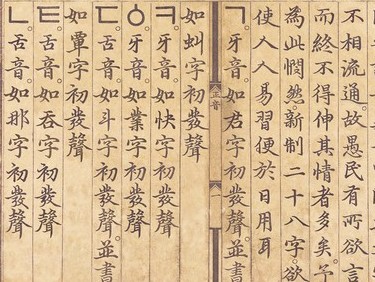 不相流通。故愚民有所欲言
而終不得伸其情者多矣。予
為此憫然。新制二十八字。欲
使人人易習便於日用耳
ㄱ。牙音。如君字初發聲。並書
正音
一
如虯字初發聲
ㅋ。牙音。如快字初發聲
ㆁ。牙音。如業字初發聲
ㄷ。舌音。如斗字初發聲。並書
如覃字初發聲
ㅌ。舌音。如呑字初發聲
ㄴ。舌音。如那字初發聲